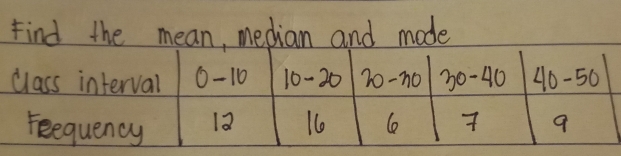 Find the mean, median and mode
Class interval 0-10 10-20 20-30 30-40 40-50
Feequency 12 16 6 7 9